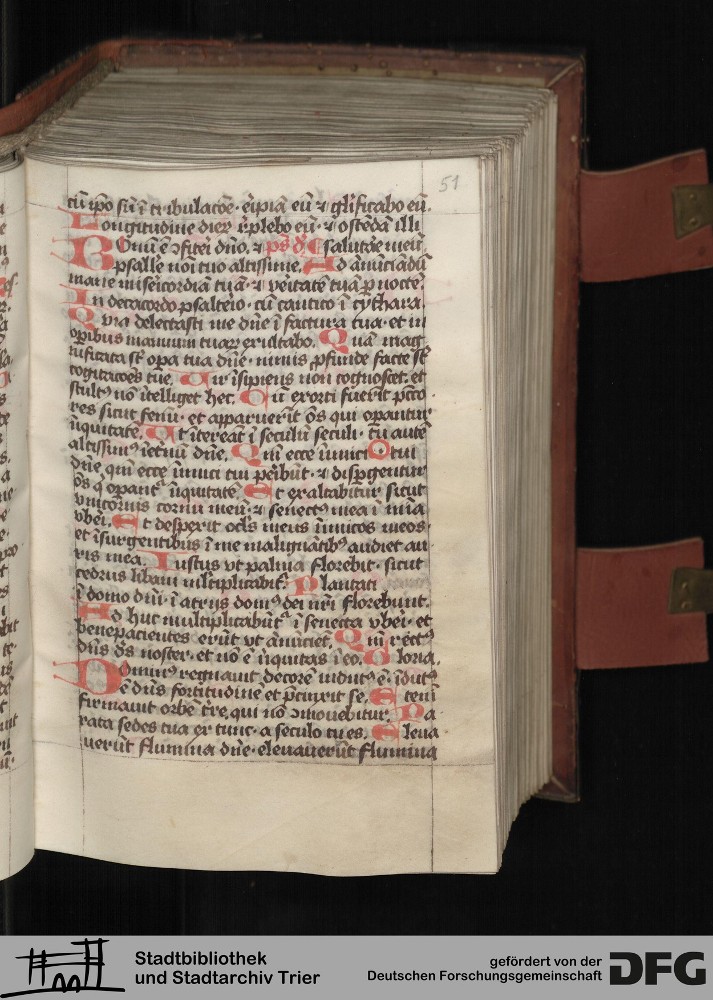 51
cū ip̄o sū ī tribulacōe · eripiā eū ⁊ gl̄ificabo eū.
Longitudine dieꝝ replebo eū · ⁊ ostēdā illi
BOnū ē ↄfitei dn̄o, ⁊ ps d̄d salutāe meū
psalle noī tuo altissime. Ad ānūciādū
mane misericordiā tuā · ⁊ veitatē tuā ꝑ noctē.
In decacordo psalteio · cū cantico ī cythara.
Quia delectasti me dn̄e ī factura tua · et in
opibus manuum tuaꝝ exultabo. Quā mag
nificata st̄ opa tua dn̄e · nimis ꝓfunde facte st̄
cogitacōes tue. Uir īsipiens non cognoscet · et
stultꝰ nō ītelliget hec. Cū exorti fuerit pc̄co
res sicut fenū · et apparuerīt ōs qui opantur
īiquitatē. Ut ītereāt ī seculū seculi · tu autē
altissimꝰ īet̄nū dn̄e. Qm̄ ecce īimici tui
dn̄e, qm̄ ecce īimici tui peribūt · ⁊ dispgentur
ōs q̄ opant᷑ īiquitatē. Et exaltabitur sicut
vnicornis cornu meū · ⁊ senectꝰ mea ī mīa
vberi. Et despexit oclꝰs meus īimicos meos ·
et īsurgentibus ī me malignātibꝰ audiet au
ris mea. Iustus vt palma florebit · sicut
cedrus libani mltiplicabit᷑. Plantati
ī domo dn̄i · ī atrijs domꝰ dei nr̄i florebunt.
Ad huc multiplicabūt᷑ ī senecta vberi · et
benepacientes erūt vt ānūciēt. Qm̄ rectꝰ
dn̄s d̄s noster · et nō ē īiquitas ī eo. Gloria.
DOminꝰ regnauit decorē indutꝰ ē · īdutꝰ
ē dn̄s fortitudinē et p̄cinxit se. Etenī
firmauit orbē t̄re, qui nō ↄmouebitur. Pa
rata sedes tua ex tunc · a seculo tu es. Eleua
uerūt flumina dn̄e · eleuauerūt flumina
Stadtbibliothek
und Stadtarchiv Trier
gefördert von der
Deutschen Forschungsgemeinschaft
DFG